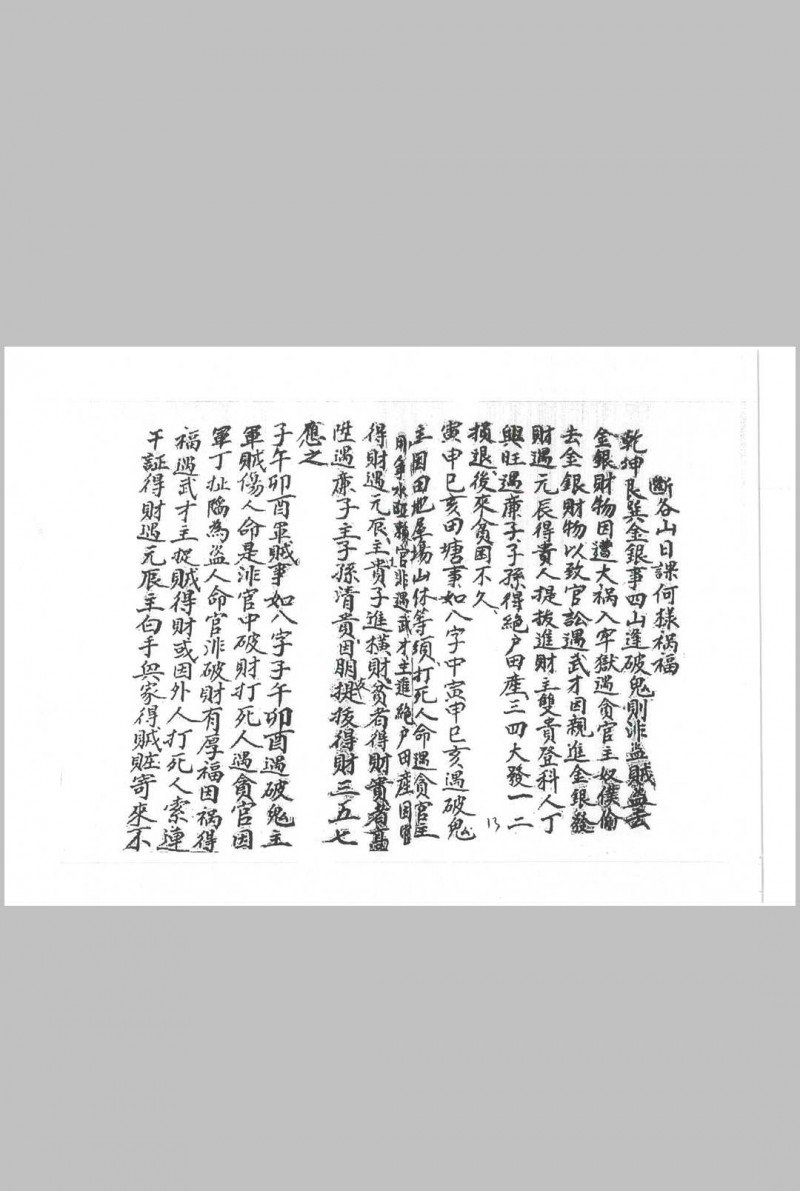 斷各山日課何樣祸福
乾坤艮巽金銀事四山逢破鬼則淮盜賊盜去
金銀財物因遭大祸入牢獄遇貪官主奴僕偷
去金銀財物以致官訟遇武才因親進金銀發
財遇元辰得貴人提拔進財主雙貴登科人丁
興旺遇廉子子孫得絕户田產三四大發一二
損退後來貧困不久
13
寅申巳亥田塘事如八字中寅申巳亥遇破鬼
主因田地屋場山休等項打死人命遇貪官主
用争水賴官非遇武才主進絕户田產因
得財遇元辰主貴子進橫財貧者得財貴者高
陞遇廉子主子孫清貴因朋友提拔得財三五七
應之
子午卯酉軍賊事如八字子午卯酉遇破鬼主
軍賊傷人命是非官中破財打死人遇貪官因
軍丁扯陷為盜人命官非破財有厚福因祸得
福遇武才主捉賊得財或因外人打死人索連
干証得財遇元辰主白手興家得賊賍寄來不